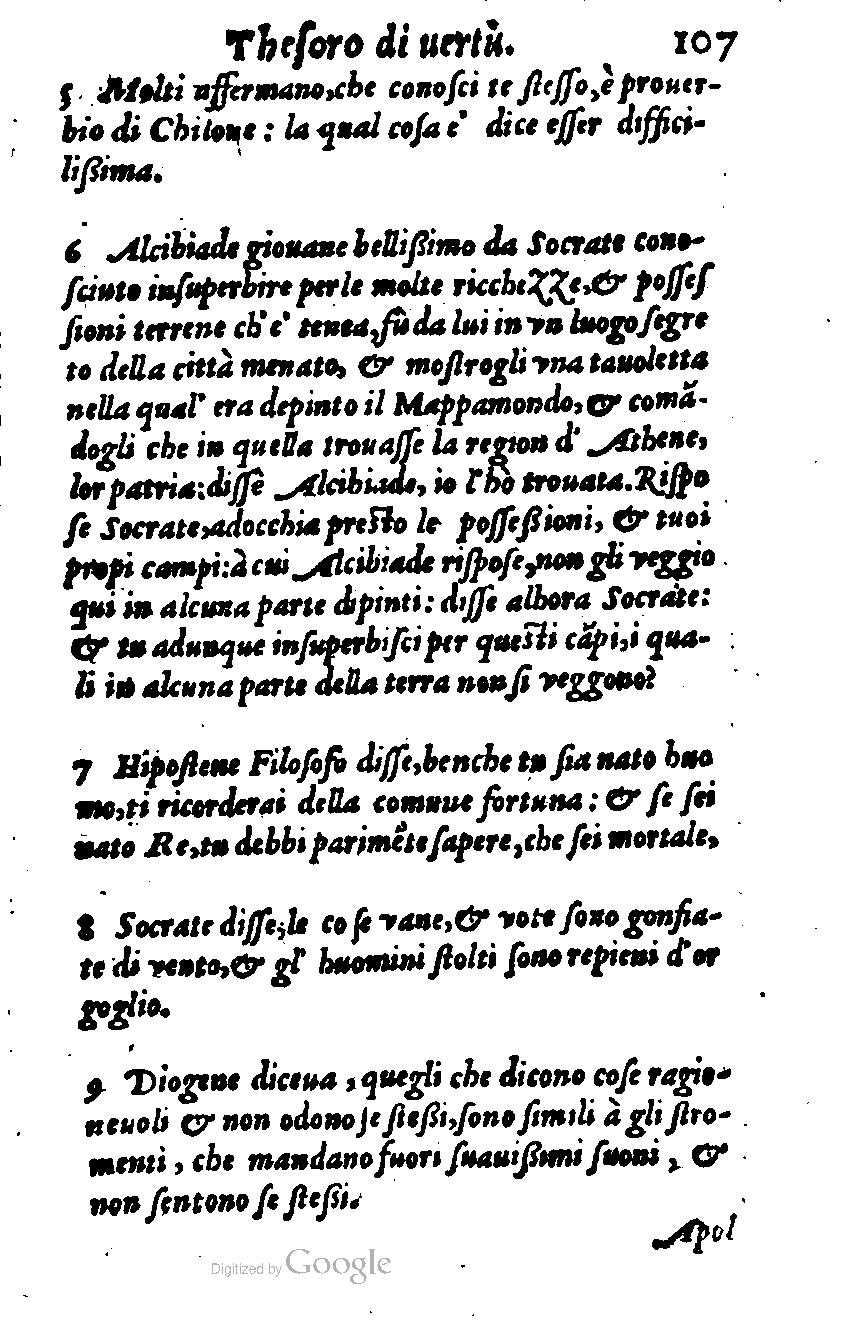 Theſoro di uertù. 107
5 Molti affermano, che conoſci te ſteſſo, è prouer-
bio di Chilone: la qual coſa e' dice eſſer diffici-
lißima.
6 Alcibiade giouane bellißimo da Socrate cono-
ſciuto inſuperbire per le molte ricchezze, & poſſeſ
ſioni terrene ch'e' tenea, fù da lui in vn luogo ſegre
to della città menato, & moſtrogli vna tauoletta
nella qual' era depinto il Mappamondo, & comã-
dogli che in quella trouaſſe la region d' Athene,
lor patria: diſſe Alcibiade, io l'hò trouata. Riſpo
ſe Socrate, adocchia preſto le poſſeßioni, & tuoi
propi campi: à cui Alcibiade riſpoſe, non gli veggio
qui in alcuna parte dipinti: diſſe alhora Socrate:
& tu adunque inſuperbiſci per queſti cãpi, i qua-
li in alcuna parte della terra non ſi veggono?
7 Hipoſtene Filoſofo diſſe, benche tu ſia nato huo
mo, ti ricorderai della comune fortuna: & ſe ſei
nato Re, tu debbi parimẽte ſapere, che ſei mortale,
8 Socrate diſſe, le coſe vane, & vote ſono gonfia-
te di vento, & gl' huomini ſtolti ſono repieni d'or
goglio.
9 Diogene diceua, quegli che dicono coſe ragio-
neuoli & non odono ſe ſteßi, ſono ſimili à gli ſtro-
menti, che mandano fuori ſuauißimi ſuoni, &
non ſentono ſe ſteßi.
Apol
Digitized by Google